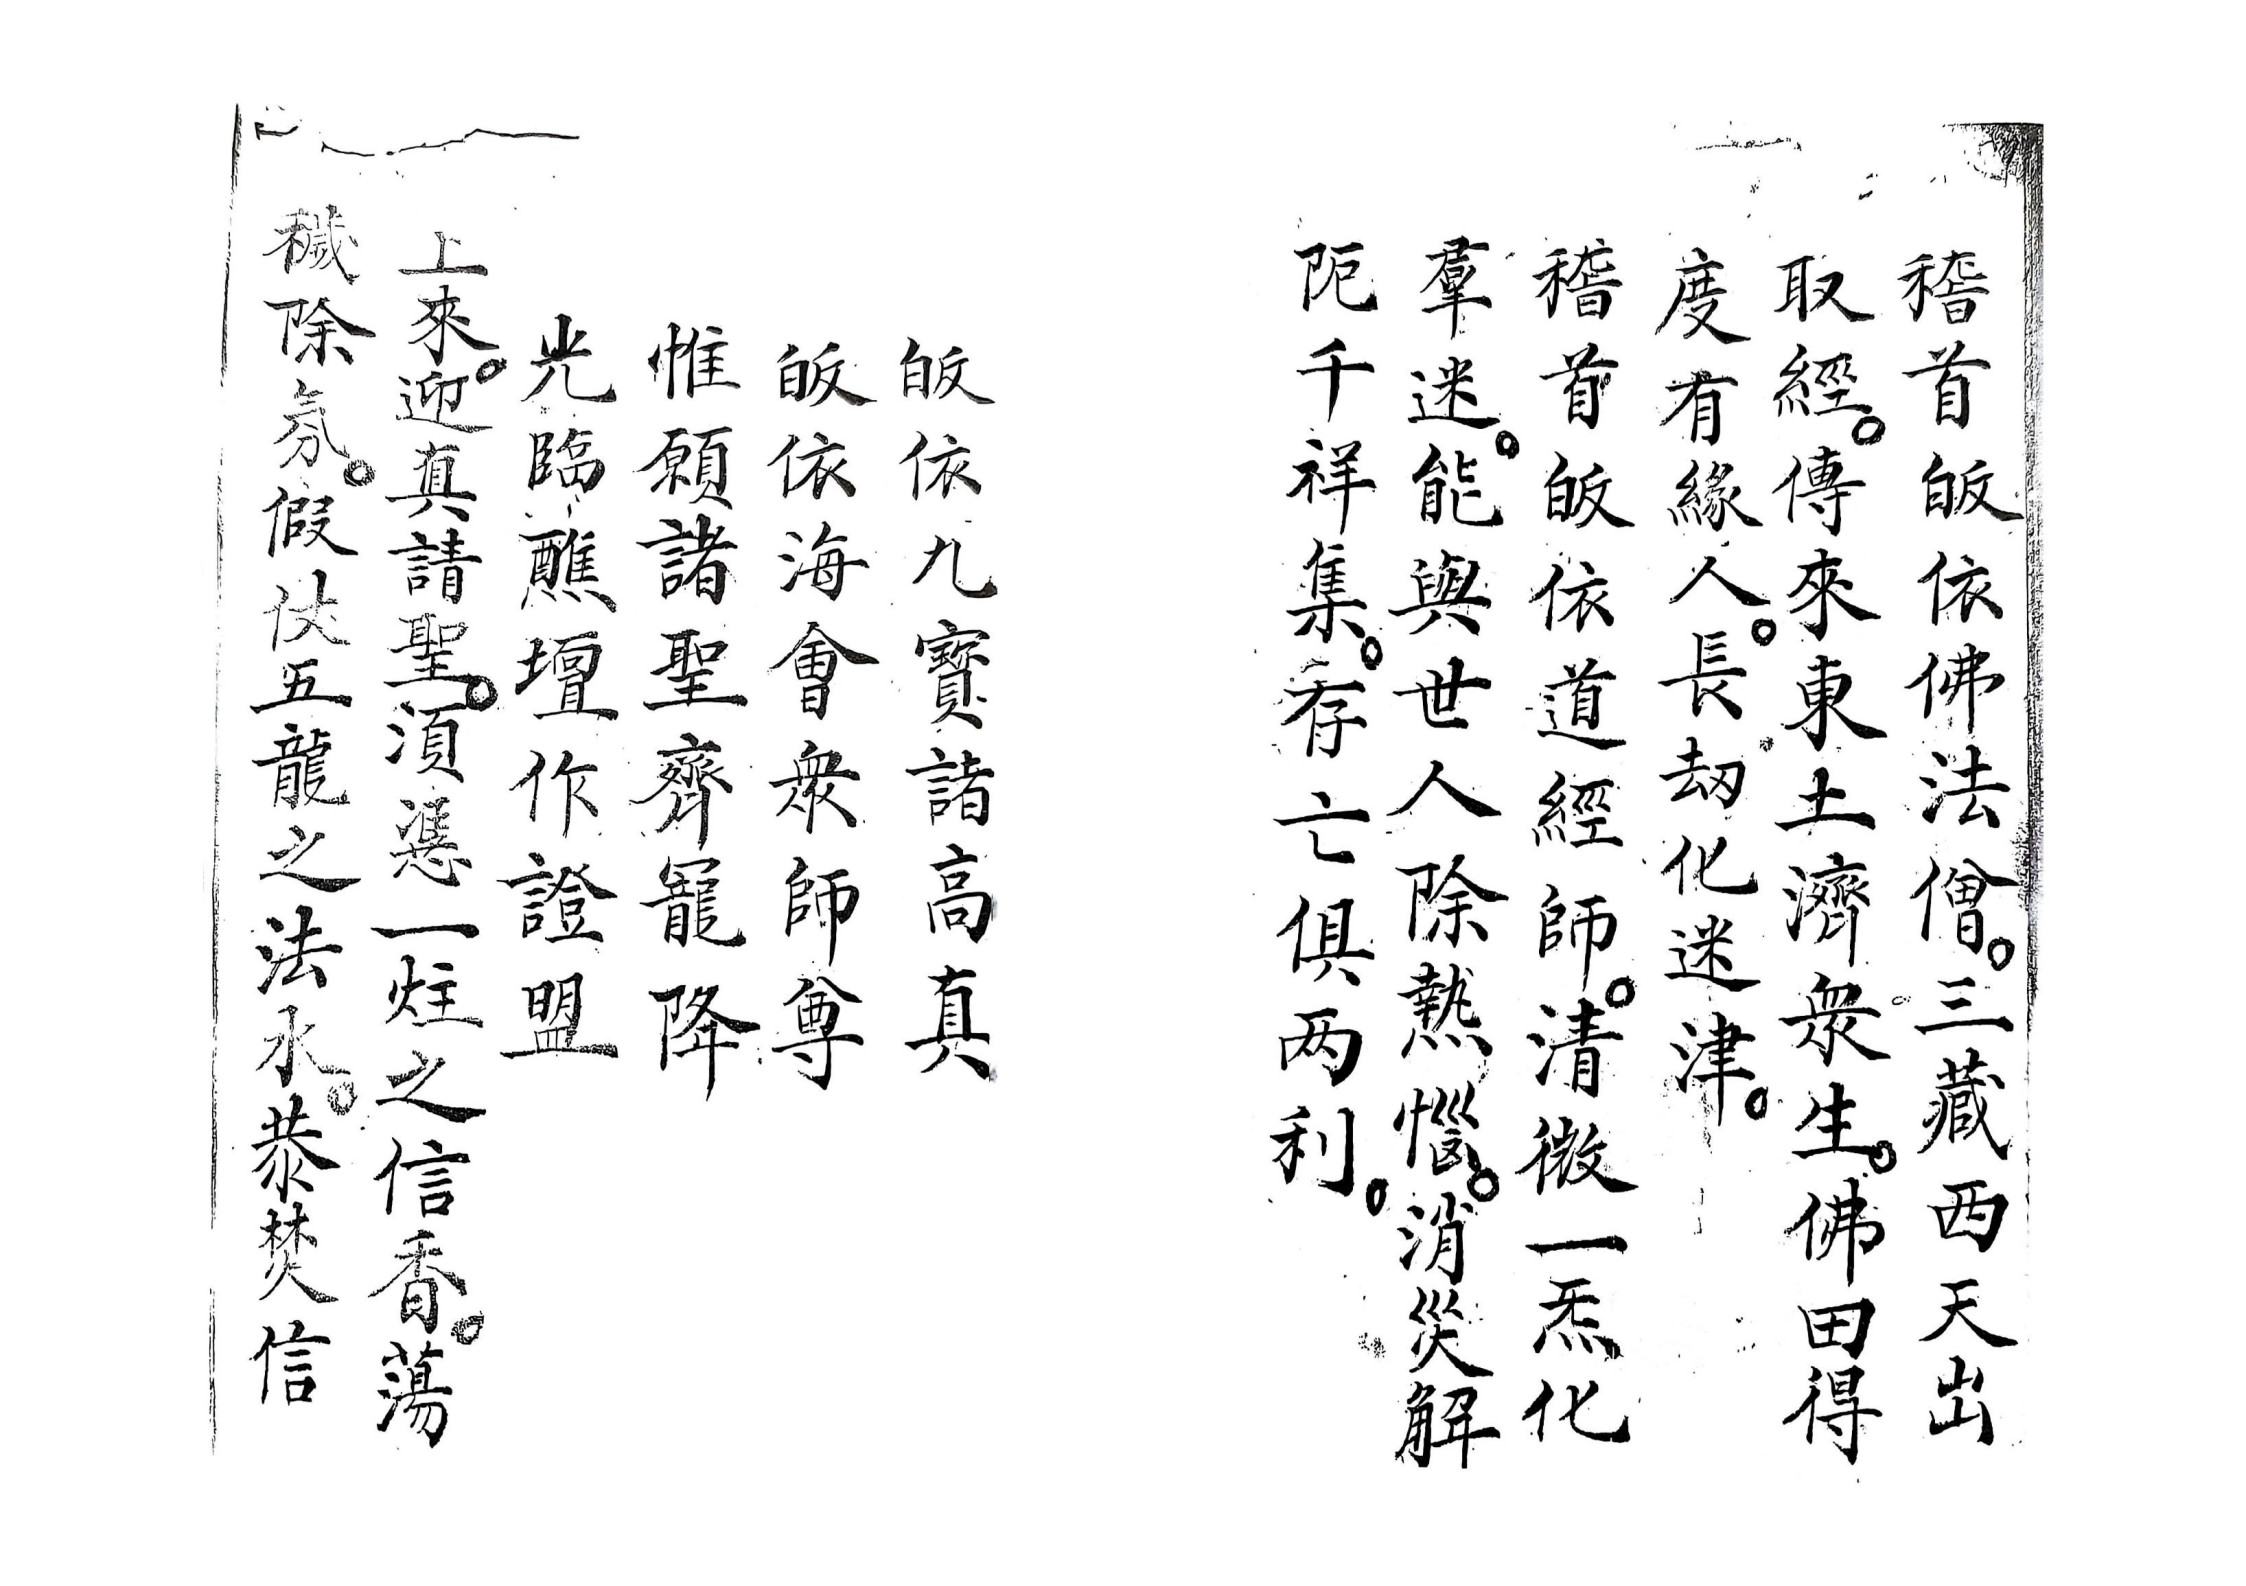 稽首皈依佛法僧。三藏西天出
取經。傳來東土濟衆生。佛田得
度有緣人。長劫化迷津。
稽首皈依道經師。清微一炁化
羣迷。能與世人除熱惱。消災解
阨千祥集。存亡俱两利。
皈依九寳諸高真
皈依海會衆師尊
惟願諸聖齊寵降
光臨醮壇作證盟
上來。迎真請聖。湏慿一炷之信香。蕩
穢除氛。假仗五龍之法水。恭焚信